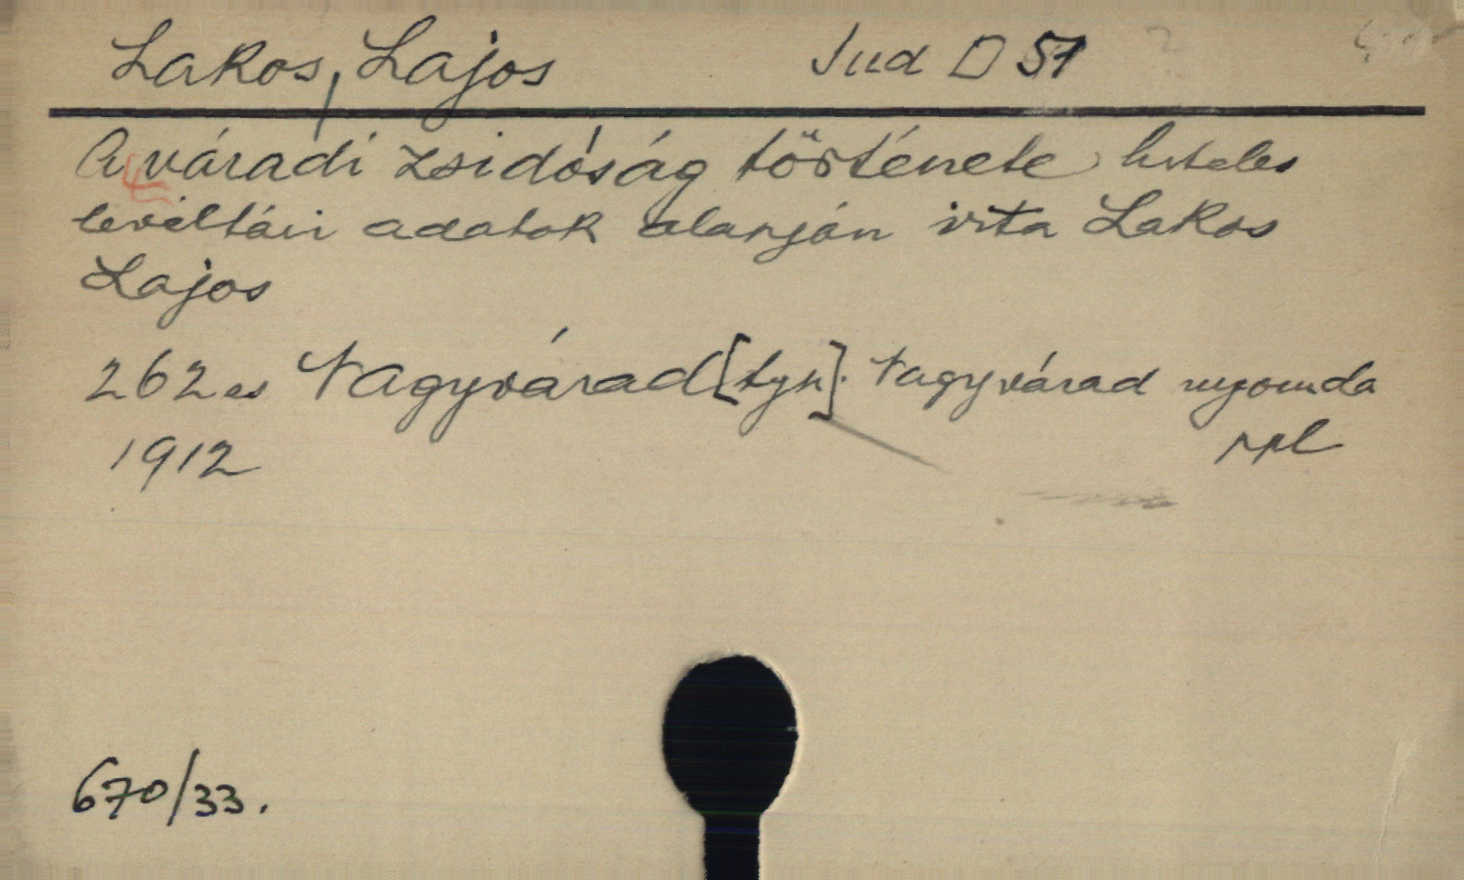 Lakos, Lajos Jud D 51
A váradi zsidóság története hiteles
levéltári adatok alapján irta Lakos
Lajos
262 es Nagyvárad [tyn]. Nagyvárad nyomda
1912 ppl
670/33.